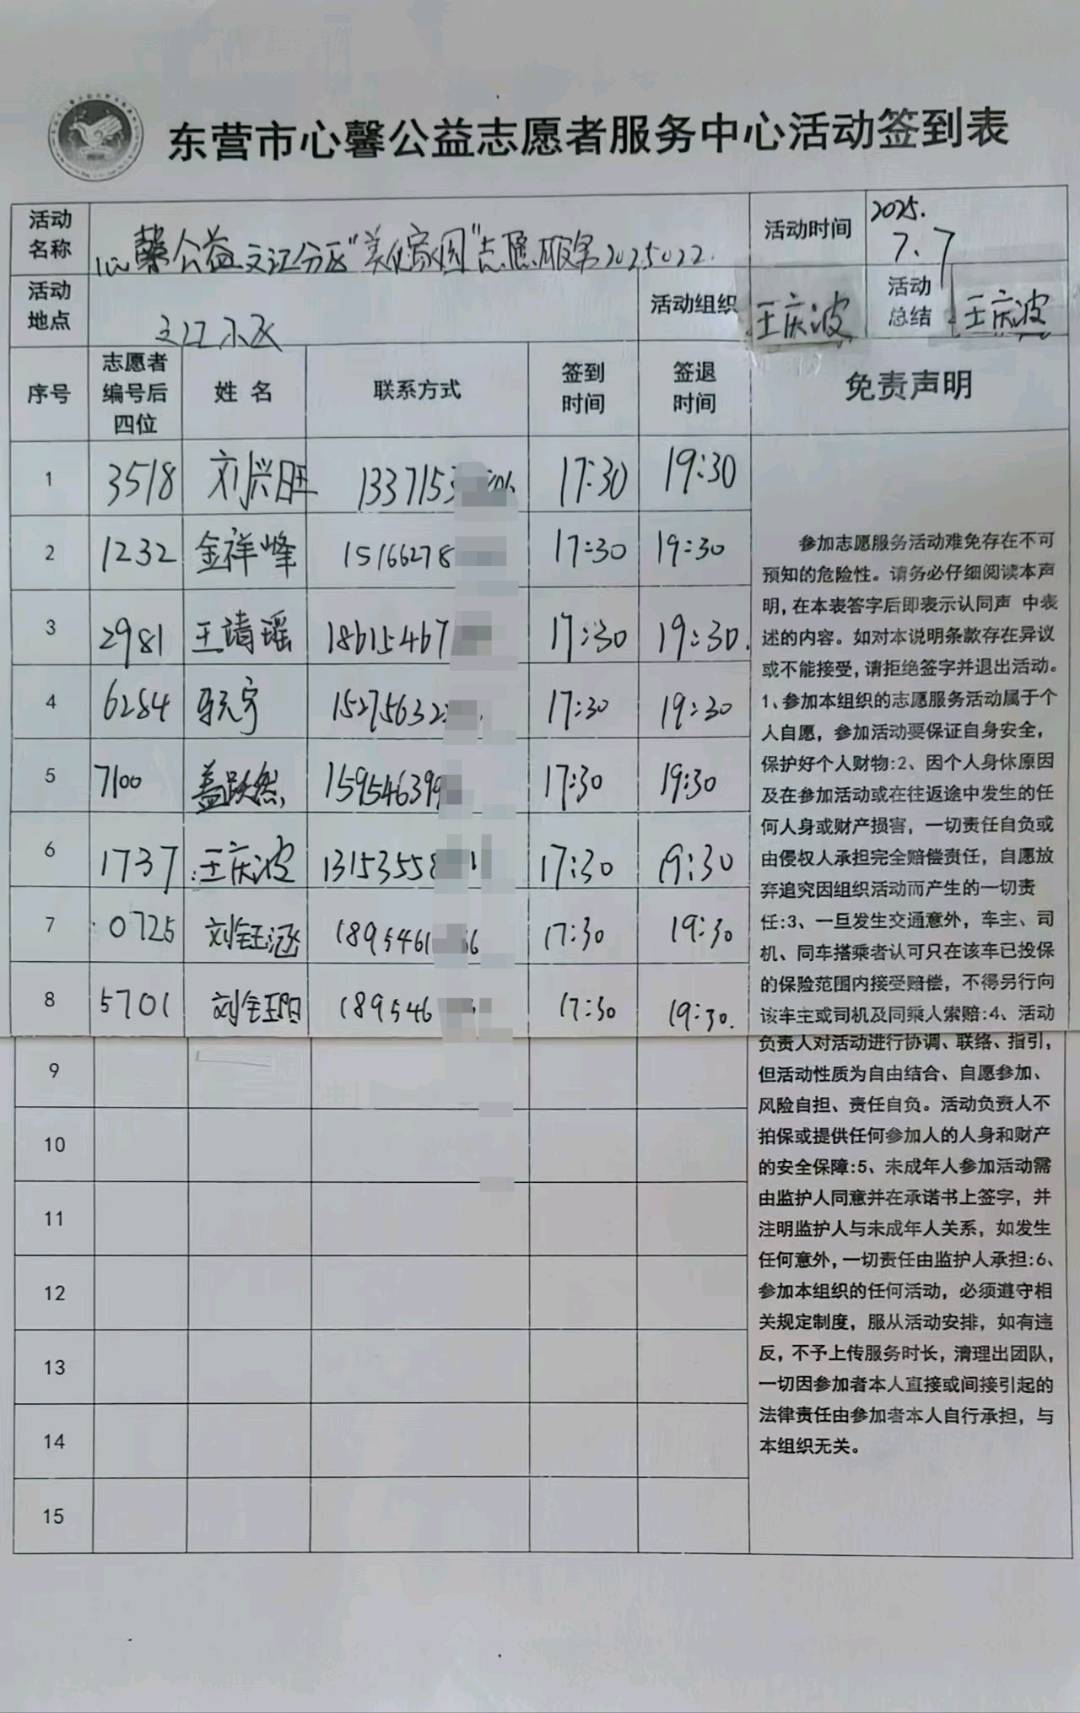 东营市心馨公益志愿者服务中心活动签到表
活动名称 心馨公益文江分区"美化家园"志愿服务2025022. 活动时间 2025.7.7
活动地点 文江小区 活动组织 王庆波 活动总结 王庆波
序号 志愿者编号后四位 姓名 联系方式 签到时间 签退时间 免责声明
1 3518 刘兴旺 1337153 17:30 19:30
2 1232 金祥峰 15166278 17:30 19:30
3 2981 王靖瑶 18615467 17:30 19:30.
4 6284 15275632 17:30 19:30
5 7100 盖跃然 159546399 17:30 19:30
6 1737 王庆波 13153558 17:30 19:30
7 0725 刘钰涵 1895461 17:30 19:30
8 5701 刘钰阳 189546 17:30 19:30.
9
10
11
12
13
14
15
参加志愿服务活动难免存在不可
预知的危险性。请务必仔细阅读本声
明,在本表答字后即表示认同声 中表
述的内容。如对本说明条款存在异议
或不能接受,请拒绝签字并退出活动。
1、参加本组织的志愿服务活动属于个
人自愿，参加活动要保证自身安全，
保护好个人财物:2、因个人身休原因
及在参加活动或在往返途中发生的任
何人身或财产损害，一切责任自负或
由侵权人承担完全赔偿责任，自愿放
弃追究因组织活动而产生的一切责
任:3、一旦发生交通意外，车主、司
机、同车搭乘者认可只在该车已投保
的保险范围内接受赔偿，不得另行向
该车主或司机及同乘人索赔:4、活动
负责人对活动进行协调、联络、指引，
但活动性质为自由结合、自愿参加、
风险自担、责任自负。活动负责人不
拍保或提供任何参加人的人身和财产
的安全保障:5、未成年人参加活动需
由监护人同意并在承诺书上签字，并
注明监护人与未成年人关系，如发生
任何意外,一切责任由监护人承担:6、
参加本组织的任何活动，必须遵守相
关规定制度，服从活动安排，如有违
反，不予上传服务时长，清理出团队，
一切因参加者本人直接或间接引起的
法律责任由参加者本人自行承担，与
本组织无关。